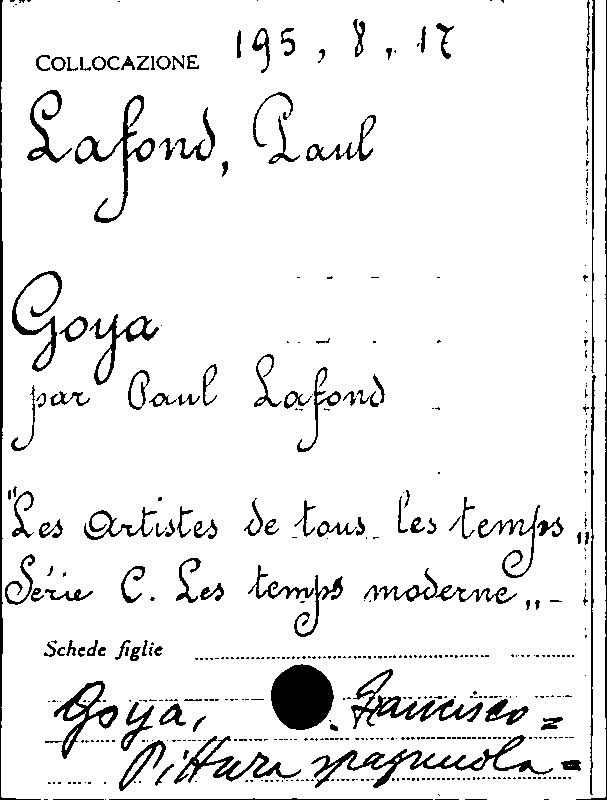 COLLOCAZIONE 195, 8, 17
Lafond, Paul
Goya
par Paul Lafond
"Les Artistes de tous les temps„
Série C. Les temps moderne„ -
Schede figlie
Goya, Francisco =
Pittura spagnuola =